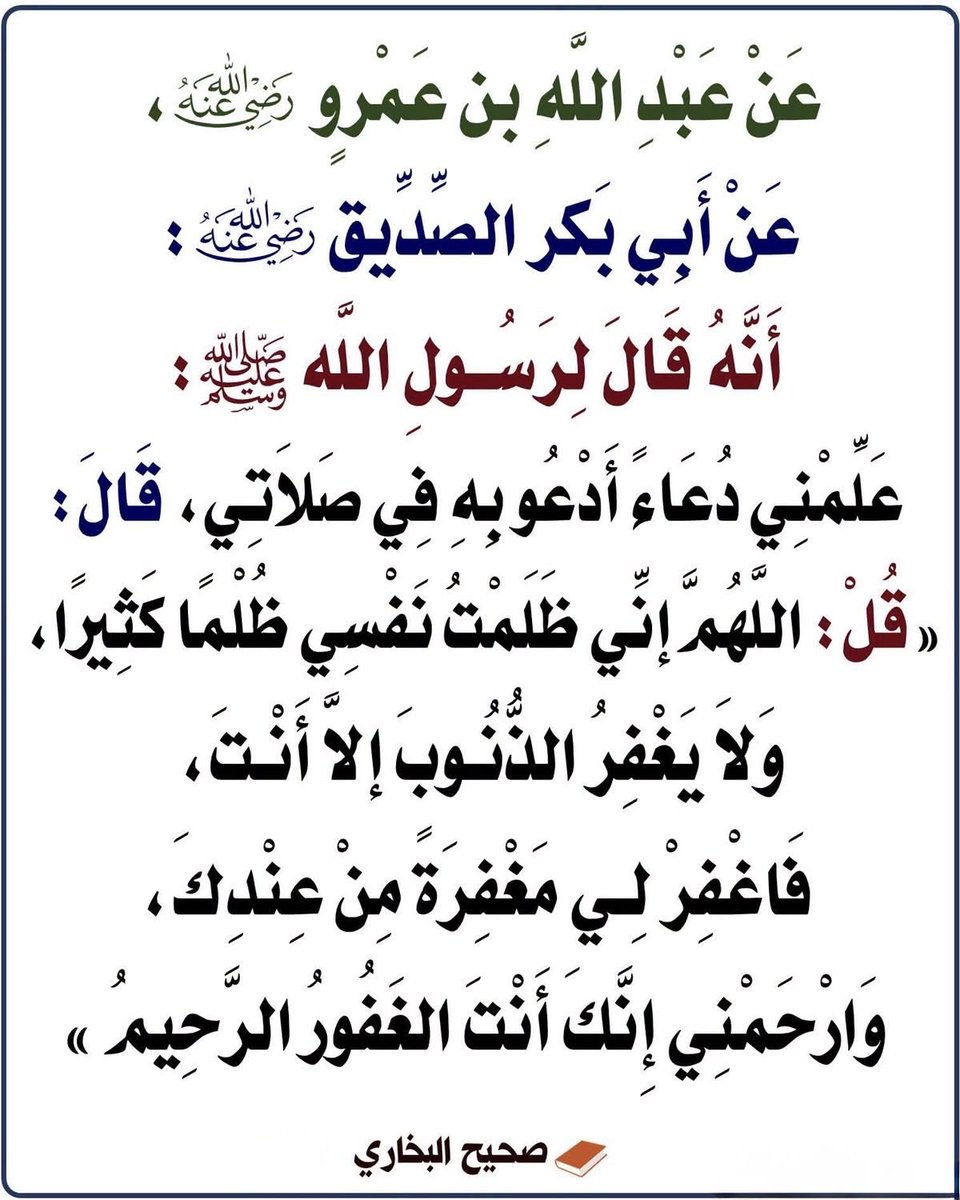 عَنْ عَبْدِ اللَّهِ بن عَمْرٍو رَضِيَ اللهُ عَنْهُ ،
عَنْ أَبِي بَكر الصِّدِّيق رَضِيَ اللهُ عَنْهُ :
أَنَّهُ قَالَ لِرَسُـولِ اللَّه ﷺ :
عَلِّمْنِي دُعَاءً أَدْعُو بِهِ فِي صَلاَتِي، قَالَ :
« قُلْ : اللَّهُمَّ إنِّي ظَلَمْتُ نَفْسِي ظُلْمًا كَثِيرًا،
وَلاَ يَغْفِرُ الذُّنُـوبَ إلاَّ أَنْـتَ،
فَاغْفِرْ لِـي مَغْفِرَةً مِنْ عِنْدِكَ،
وَارْحَمْنِي إِنَّكَ أَنْتَ الغَفُورُ الرَّحِيمُ »
صحيح البخاري